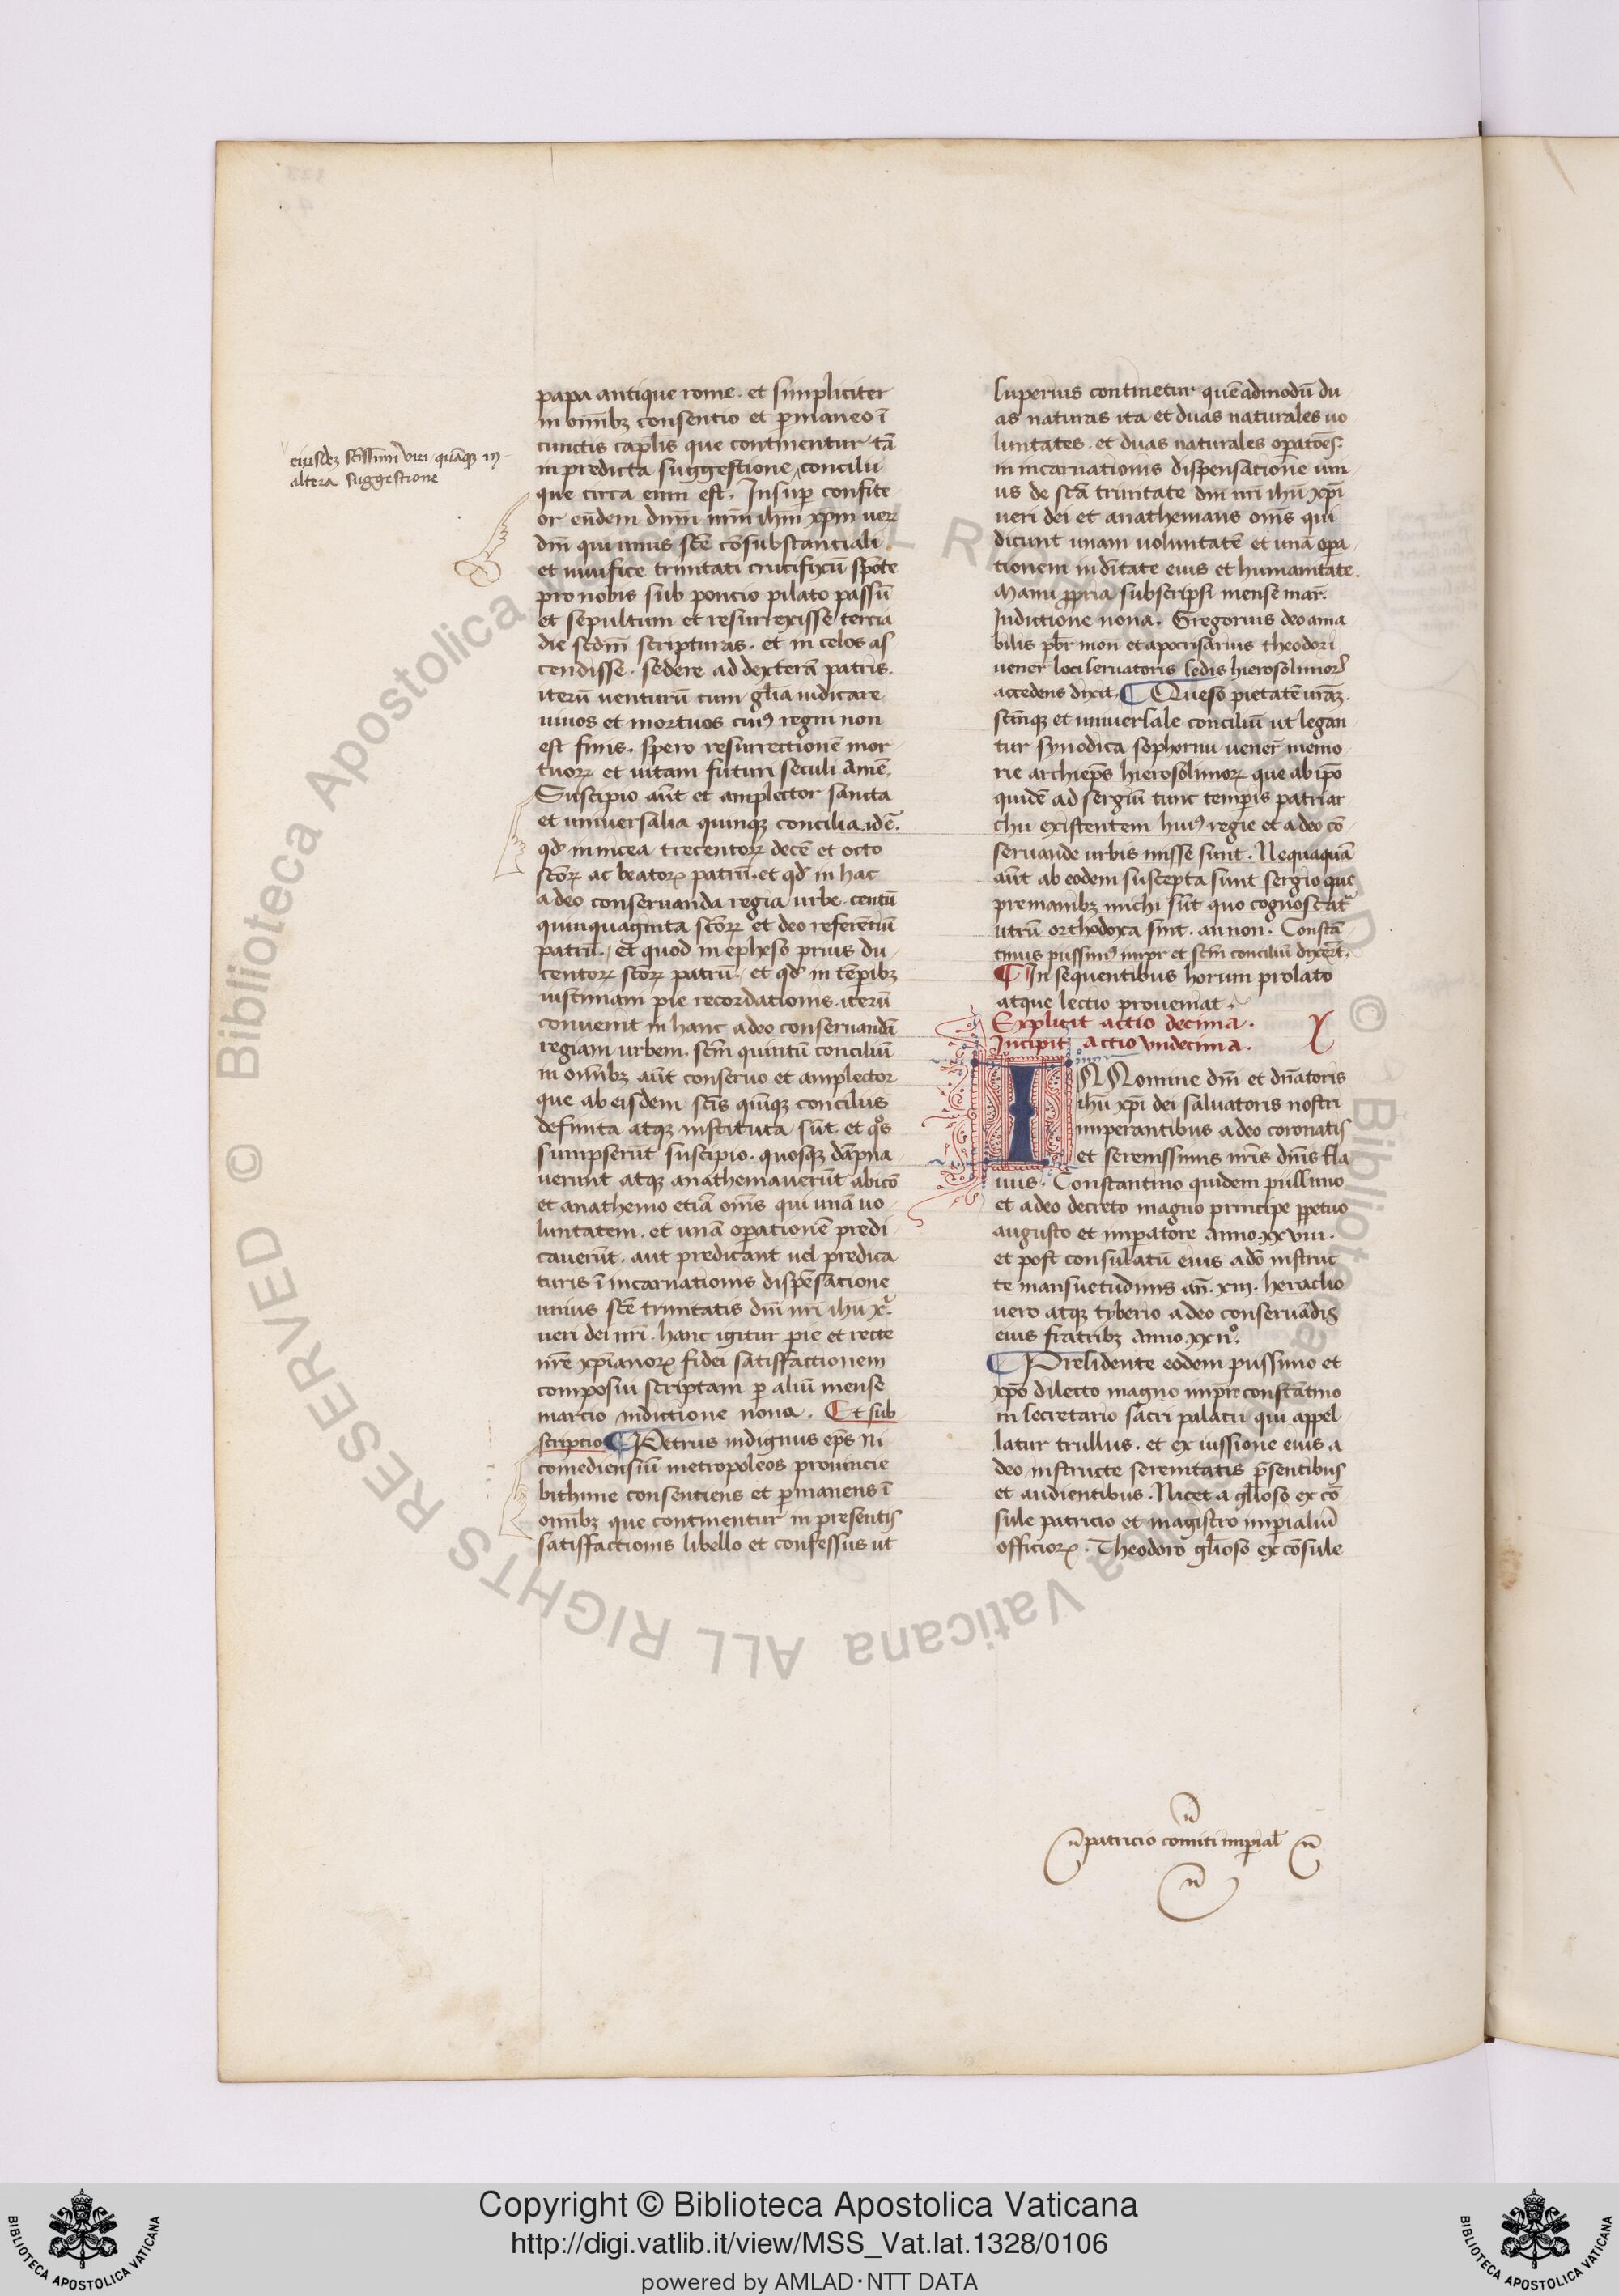 papa antique rome. et simpliciter
in om̄ibꝫ consentio et ꝑmaneo ī
cunctis capl̄is que continentur tā
in predicta suggestione concilii
que circa eum est. Insuꝑ confite
or eūdem dnm̄ nrm̄ ihm̄ xp̄m ueꝝ
dm̄ qui unus sc̄e cōsubstanciali
et uiuifice trinitati crucifixū spōte
pro nobis sub poncio pilato passū
et sepultum et resurrexisse tercia
die scdm̄ scripturas. et in celos as
cendisse. sedere ad dexterā patris.
iterū uenturū cum gl̄ia iudicare
uiuos et mortuos cuiꝰ regni non
est finis. spero resurrectionē mor
tuoꝝ et uitam futuri seculi amē.
Suscipio aūt et amplector sancta
et uniuersalia quinqꝫ concilia. idē.
qd̄ in nicea trecentoꝝ decē et octo
sc̄oꝝ ac beatoꝝ patrū. et qd̄ in hac
a deo conseruanda regia urbe. centū
quinquaginta sc̄oꝝ et deo referētiū
patrū. et quod in epheso prius du
centoꝝ sc̄oꝝ patrū. et qd̄ in tēpibꝫ
iustiniani pie recordationis. iterū
conuenit in hanc a deo conseruandā
regiam urbem. sc̄m quintū conciliū
in om̄ibꝫ aūt conseruo et amplector
que ab eisdem sc̄is quīqꝫ conciliis
definita atqꝫ instituta sūt. et qͦs
sumpserūt suscipio. quosqꝫ dāpna
uerunt atqꝫ anathemauerūt abicō
et anathemo etiā om̄s qui unā uo
luntatem. et unā oꝑationē predi
cauerūt. aut predicant uel predica
turis ī incarnationis dispēsatione
unius sc̄e trinitatis dn̄i nr̄i ihu x.
ueri dei nr̄i. hanc igitur pie et recte
nr̄e xp̄ianoꝝ fidei satisfactionem
composui scriptam ꝑ aliū mense
marcio indictione nona. Et sub
scriptio Petrus indignus ep̄s Ni
comediensiū metropoleos prouincie
bithinie consentiens et ꝑmanens ī
om̄ibꝫ que continentur in presentis
satisfactionis libello et confessus ut
eiusdeꝫ scīssimi viri quāqꝫ in
altera suggestione
superius continetur quēadmodū du
as naturas ita et duas naturales uo
luntates. et duas naturales oꝑatōes.
in incarnationis dispensatione uni
us de sc̄a trinitate dn̄i nr̄i ihū xp̄i
ueri dei et anathemans om̄s qui
dicunt unam uoluntatē et unā oꝑa
tionem in dītate eius et humanitate.
Manu ꝓpria subscripsi mense mar.
Indictione nona. Gregorius deo ama
bilis pb̄r mon̄ et apocrisarius theodori
uener̄ loci seruatoris sedis hierosolimoꝝ
accedens dixit. Queso pietatē urāꝫ.
sc̄mqꝫ et uniuersale conciliū ut legan
tur synodica sophornii uener̄ memo
rie archiep̄s hierosolimoꝝ que ab ip̄o
quidē ad sergiū tunc temꝑis patriar
chā existentem huiꝰ regie et a deo cō
seruande urbis misse sunt. Nequaquā
aūt ab eodem suscepta sunt sergio que
pre manibꝫ michi sūt quo cognoscatᷣ
utrū orthodoxa sint. an non. Constā
tinus piissimꝰ imꝑr et sc̄m conciliū dixer̄t.
In sequentibus horum prolato
atque lectio proueniat.
Explicit actio decima. X
Incipit actio vndecima.
IN Nomine dn̄i et dn̄atoris
ihū xp̄i dei saluatoris nostri
imperantibus a deo coronatis
et serenissimis nr̄is dn̄is fla
uiis. Constantino quidem piissimo
et a deo decreto magno principe ꝑpetuo
augusto et imꝑatore anno. xxviii.
et post consulatū eius a dō instruc
te mansuetudinis an̄. xiii. heraclio
uero atqꝫ tyberio a deo conseruādis
eius fratribꝫ anno xxiiͦ.
Presidente eodem piissimo et
xp̄o dilecto magno imꝑre constātino
in secretario sacri palatii qui appel
latur trullus. et ex iussione eius a
deo instructe serenitatis p̄sentibus
et audientibus. Niceta gl̄ioso ex cō
sule patricio et magistro imꝑialiū
officioꝝ. Theodoro gl̄ioso ex cōsule
patricio comiti imꝑial̄
Copyright © Biblioteca Apostolica Vaticana
http://digi.vatlib.it/view/MSS_Vat.lat.1328/0106
powered by AMLAD·NTT DATA
BIBLIOTECA APOSTOLICA VATICANA
BIBLIOTECA APOSTOLICA VATICANA
© Biblioteca Apostolica Vaticana ALL RIGHTS RESERVED